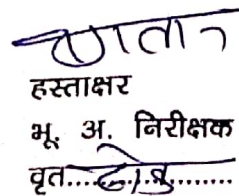 हस्ताक्षर
भू. अ. निरीक्षक
वृत